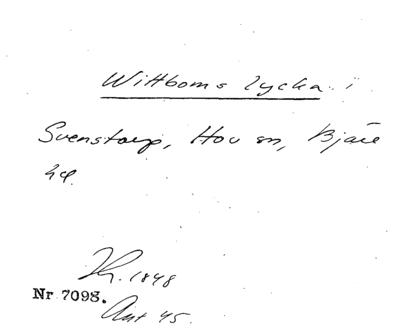 Wittboms lycka i
Svenstorp, Hov sn, Bjäre
hd.
1848
Nr 7098.
Ant 45.